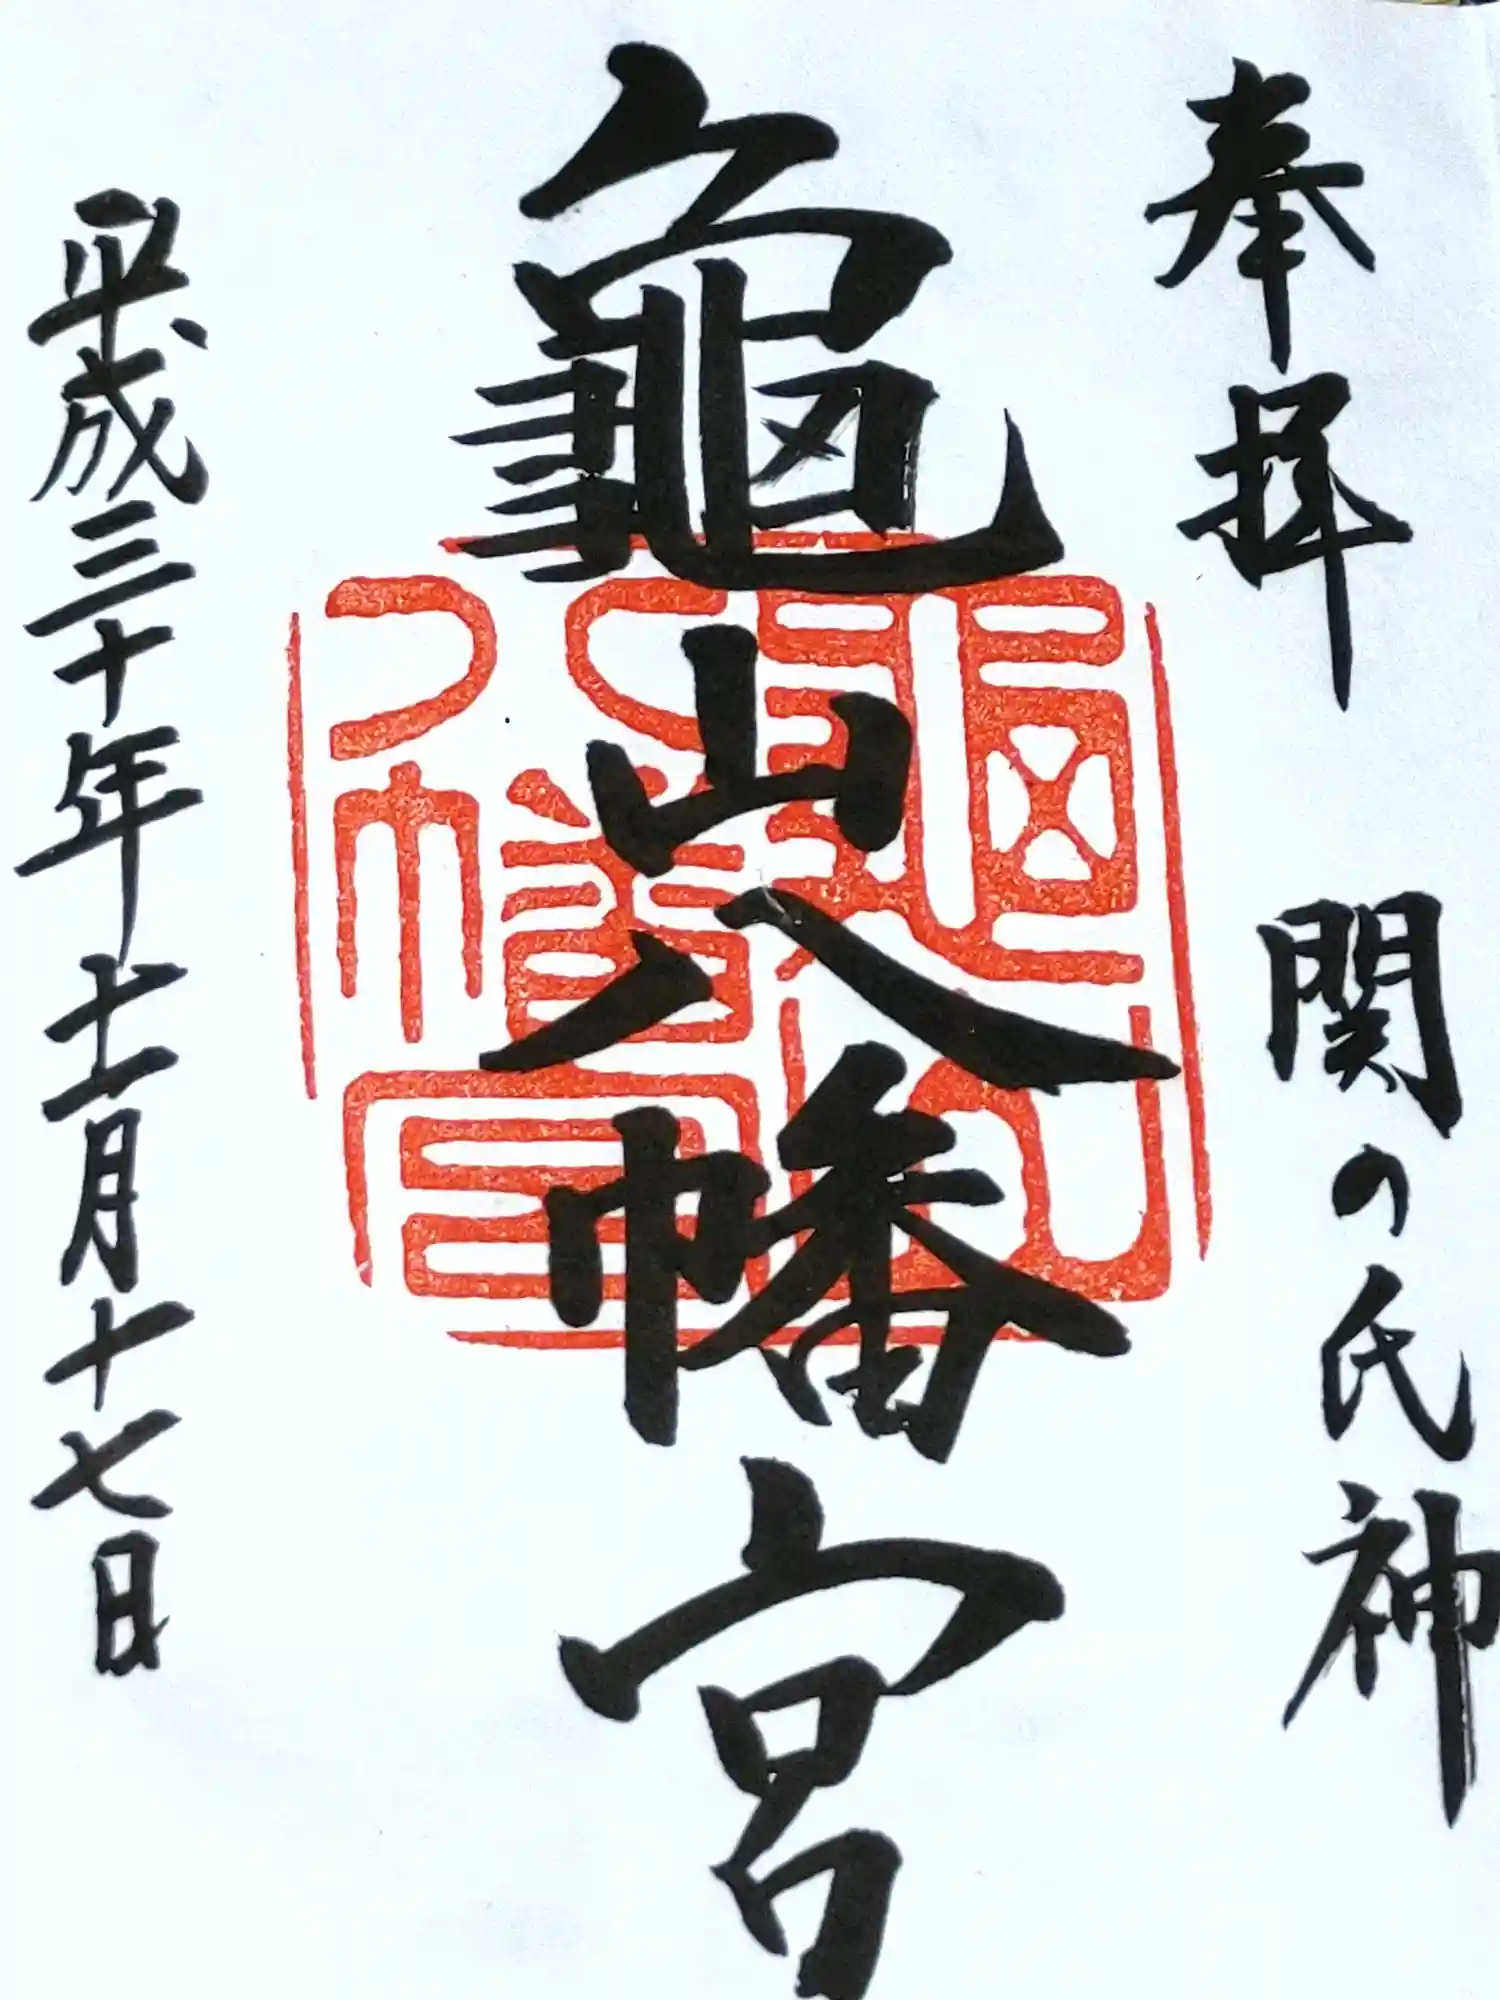 奉拝
関の氏神
龜山八幡宮
平成三十年十一月十七日
龜山八幡宮